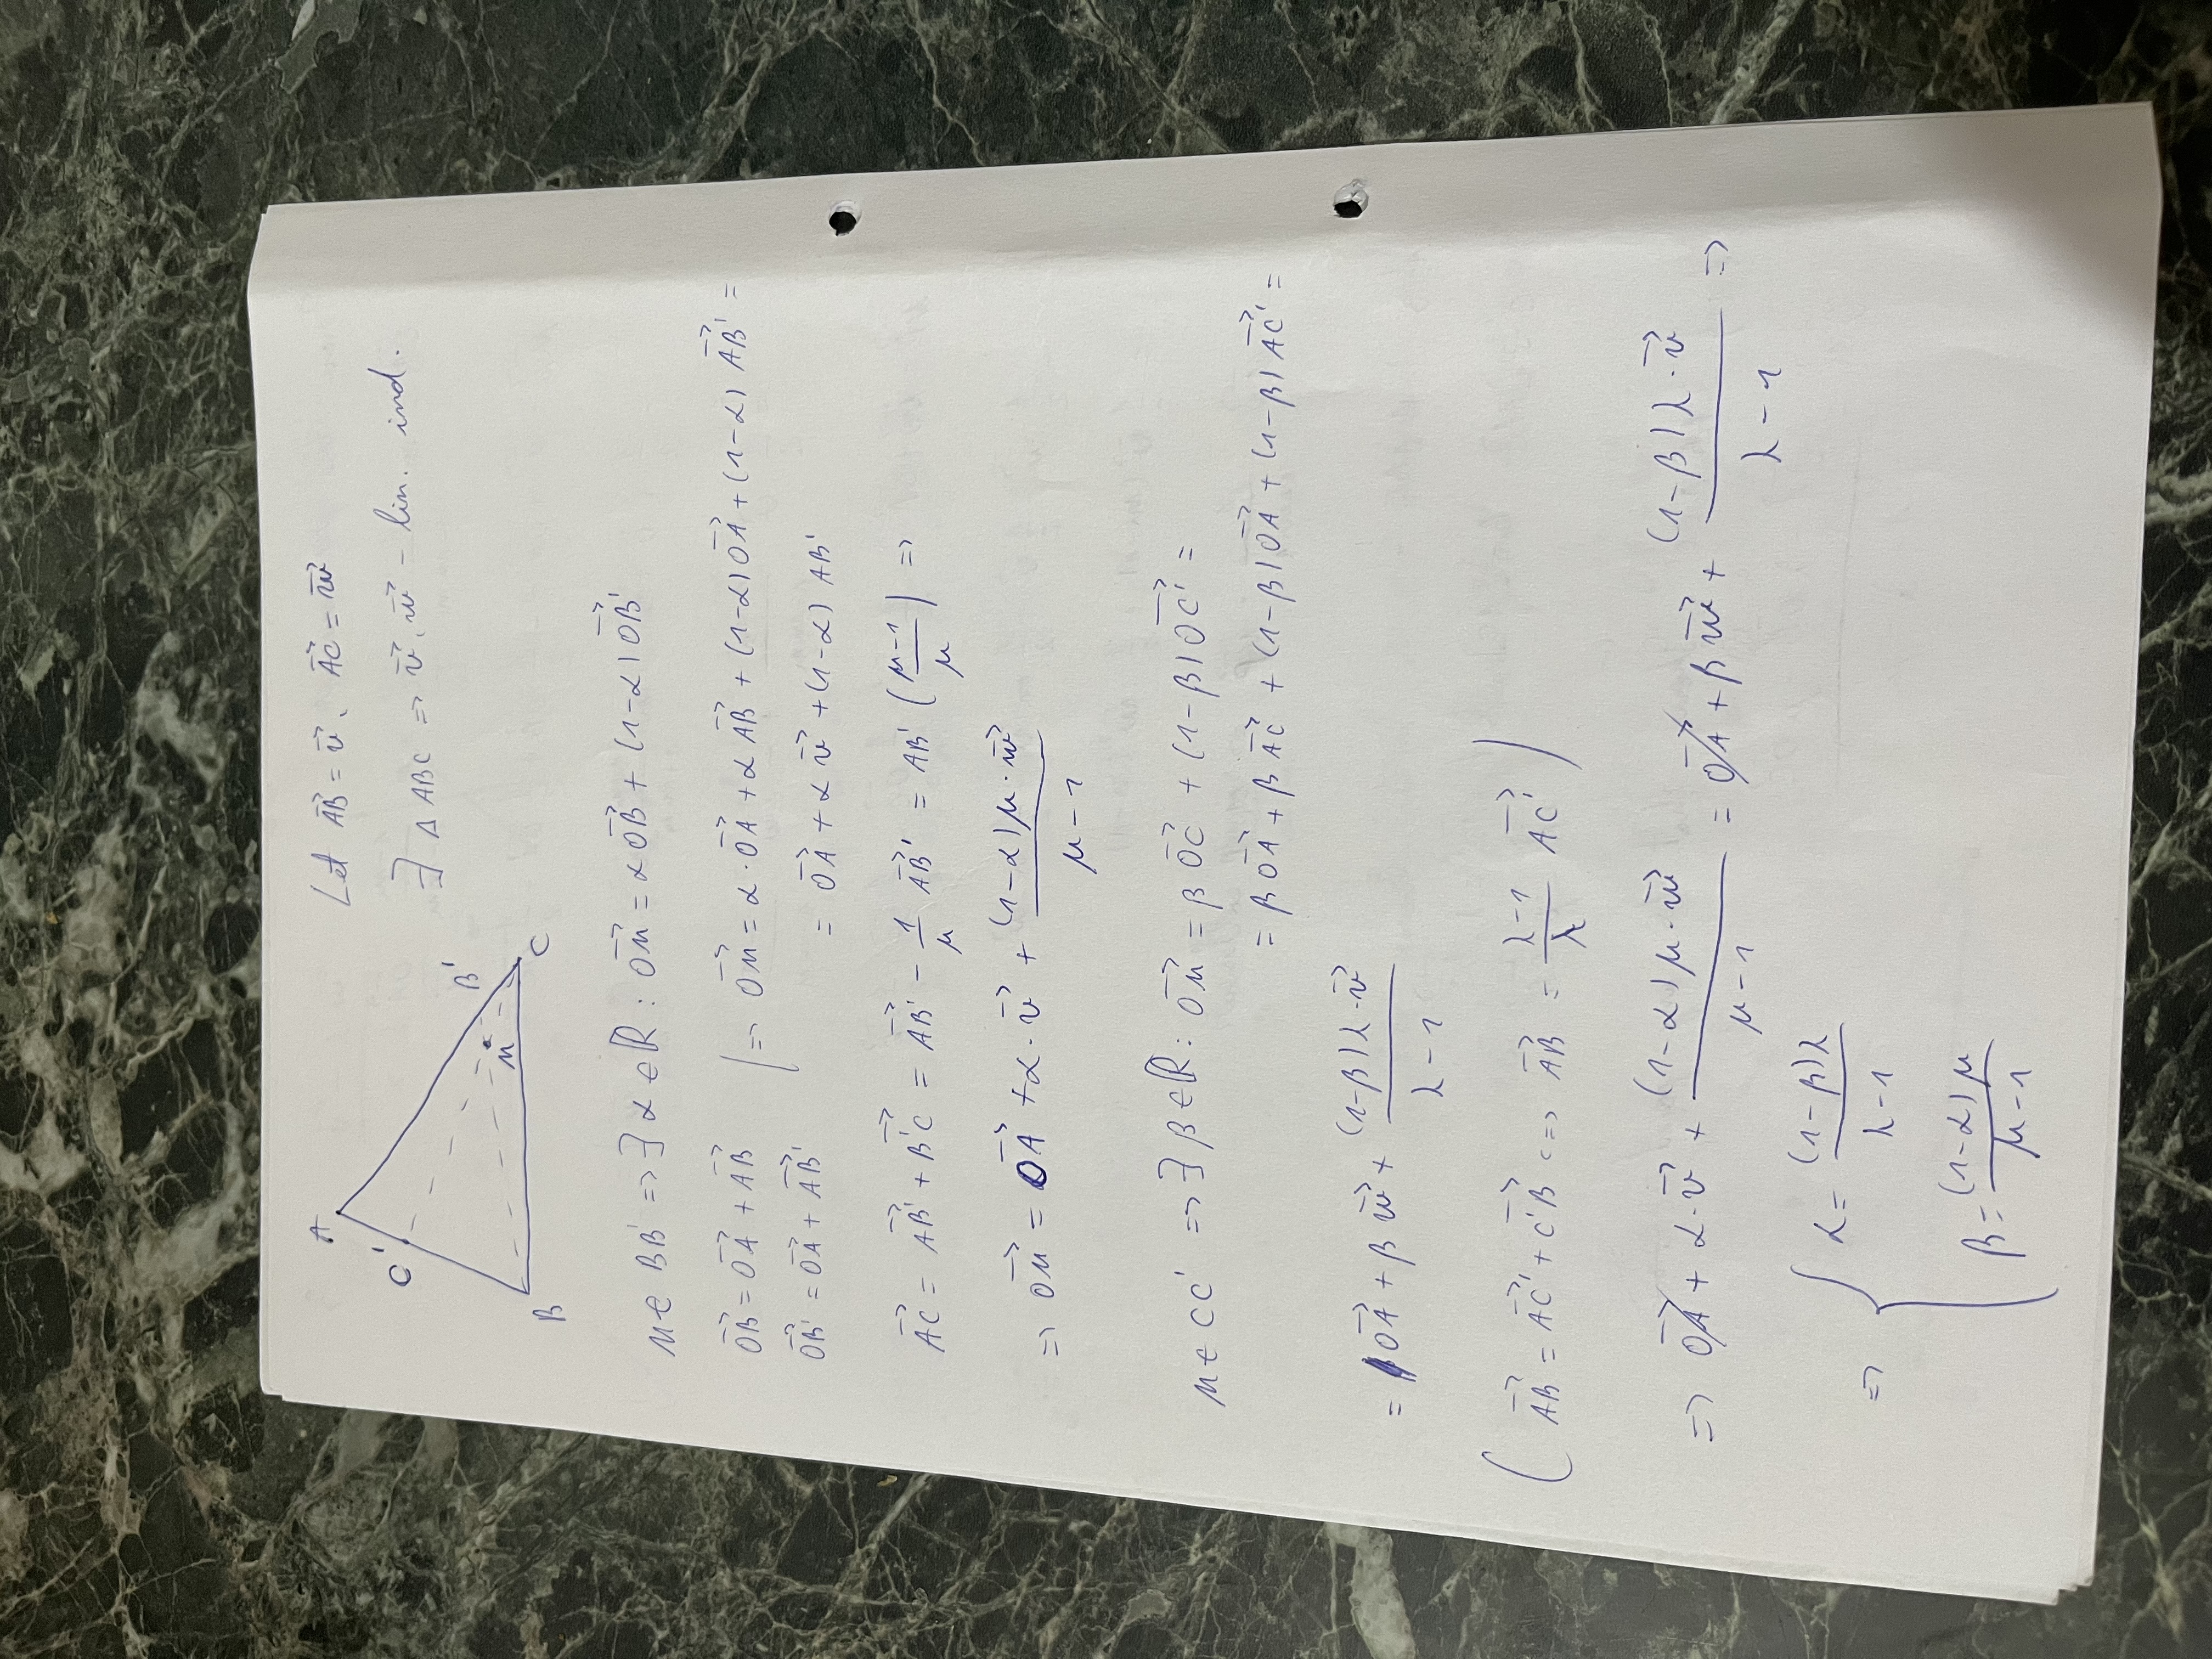 A
C'
B'
M
B
C
Let \overrightarrow{AB} = \vec{v}, \overrightarrow{AC} = \vec{w}
∃ △ ABC => \vec{v}, \vec{w} - lin. ind.
M ∈ BB' => ∃ α ∈ ℝ : \overrightarrow{OM} = α \overrightarrow{OB} + (1-α) \overrightarrow{OB'}
\overrightarrow{OB} = \overrightarrow{OA} + \overrightarrow{AB} | => \overrightarrow{OM} = α · \overrightarrow{OA} + α \overrightarrow{AB} + (1-α) \overrightarrow{OA} + (1-α) \overrightarrow{AB'} =
\overrightarrow{OB'} = \overrightarrow{OA} + \overrightarrow{AB'}
= \overrightarrow{OA} + α \vec{v} + (1-α) AB'
\overrightarrow{AC} = \overrightarrow{AB'} + \overrightarrow{B'C} = \overrightarrow{AB'} - \frac{1}{μ} \overrightarrow{AB'} = AB' (\frac{μ-1}{μ}) =>
=> \overrightarrow{OM} = \overrightarrow{OA} + α · \vec{v} + \frac{(1-α) μ · \vec{w}}{μ-1}
M ∈ CC' => ∃ β ∈ ℝ : \overrightarrow{OM} = β \overrightarrow{OC} + (1-β) \overrightarrow{OC'} =
= β \overrightarrow{OA} + β \overrightarrow{AC} + (1-β) \overrightarrow{OA} + (1-β) \overrightarrow{AC'} =
= \overrightarrow{OA} + β \vec{w} + \frac{(1-β) λ · \vec{v}}{λ-1}
( \overrightarrow{AB} = \overrightarrow{AC'} + \overrightarrow{C'B} <=> \overrightarrow{AB} = \frac{λ-1}{λ} \overrightarrow{AC'} )
=> \overrightarrow{OA} + α · \vec{v} + \frac{(1-α) μ · \vec{w}}{μ-1} = \overrightarrow{OA} + β \vec{w} + \frac{(1-β) λ · \vec{v}}{λ-1} =>
=> { α = \frac{(1-β) λ}{λ-1}
β = \frac{(1-α) μ}{μ-1}